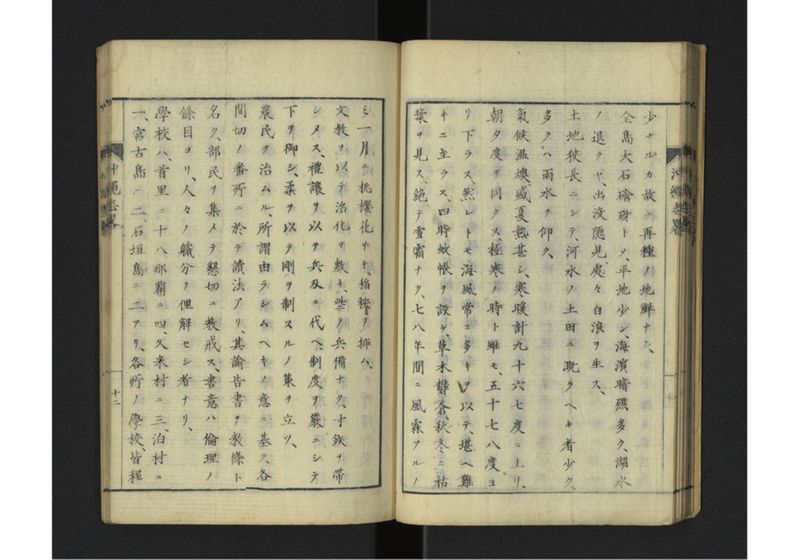 少ナルカ故ニ再種ノ地鮮ナシ、
全島大石磅砑トメ、平地少シ、海濱暗礁多ク、湖水
ノ退クヤ、出没隠見處々白浪ヲ生ス、
土地狹長ニシテ、河水ノ土田ニ漑クヘキ者少ク、
多クハ雨水ヲ仰ク、
氣候温燠、盛夏熱甚シ、寒暖計九十六七度ニ上リ、
朝夕度ヲ同クス極寒ノ時ト雖モ、五十七八度ヨ
リ下ラス、然レトモ海風常ニ多キヲ以テ、堪ヘ難
キニ至ラス、四時蚊帳ヲ設ケ、草木鬱蒼、秋冬ニ枯
葉ヲ見ス、絶テ雪霜ナク、七八年間ニ風霖アルノ
ミ、一月ニ桃櫻花サキ、稲秧ヲ挿ム、
文教ヲ以テ治化ヲ敷キ、些ノ兵備ナク、寸鉄ヲ帶
シメス、禮讓ヲ以テ兵刄ニ代ヘ、制度ヲ嚴ニシテ
下ヲ御シ、柔ヲ以テ剛ヲ制スルノ策ヲ立ツ、
農民ヲ治ムル、所謂由ラシムヘキノ意ニ基ク、各
間切ノ番所ニ於テ讀法アリ、其諭告書ヲ教條ト
名ク、部民ヲ集メテ懇切ニ教戒ス、書意ハ倫理ノ
餘目ヨリ、人々ノ職分ヲ俚解セシ者ナリ、
學校ハ首里ニ十八、那覇ニ四、久米村ニ三、泊村ニ
一、宮古島ニ二、石垣島ニ二アリ、各所ノ學校、皆程
沖繩志畧
十二